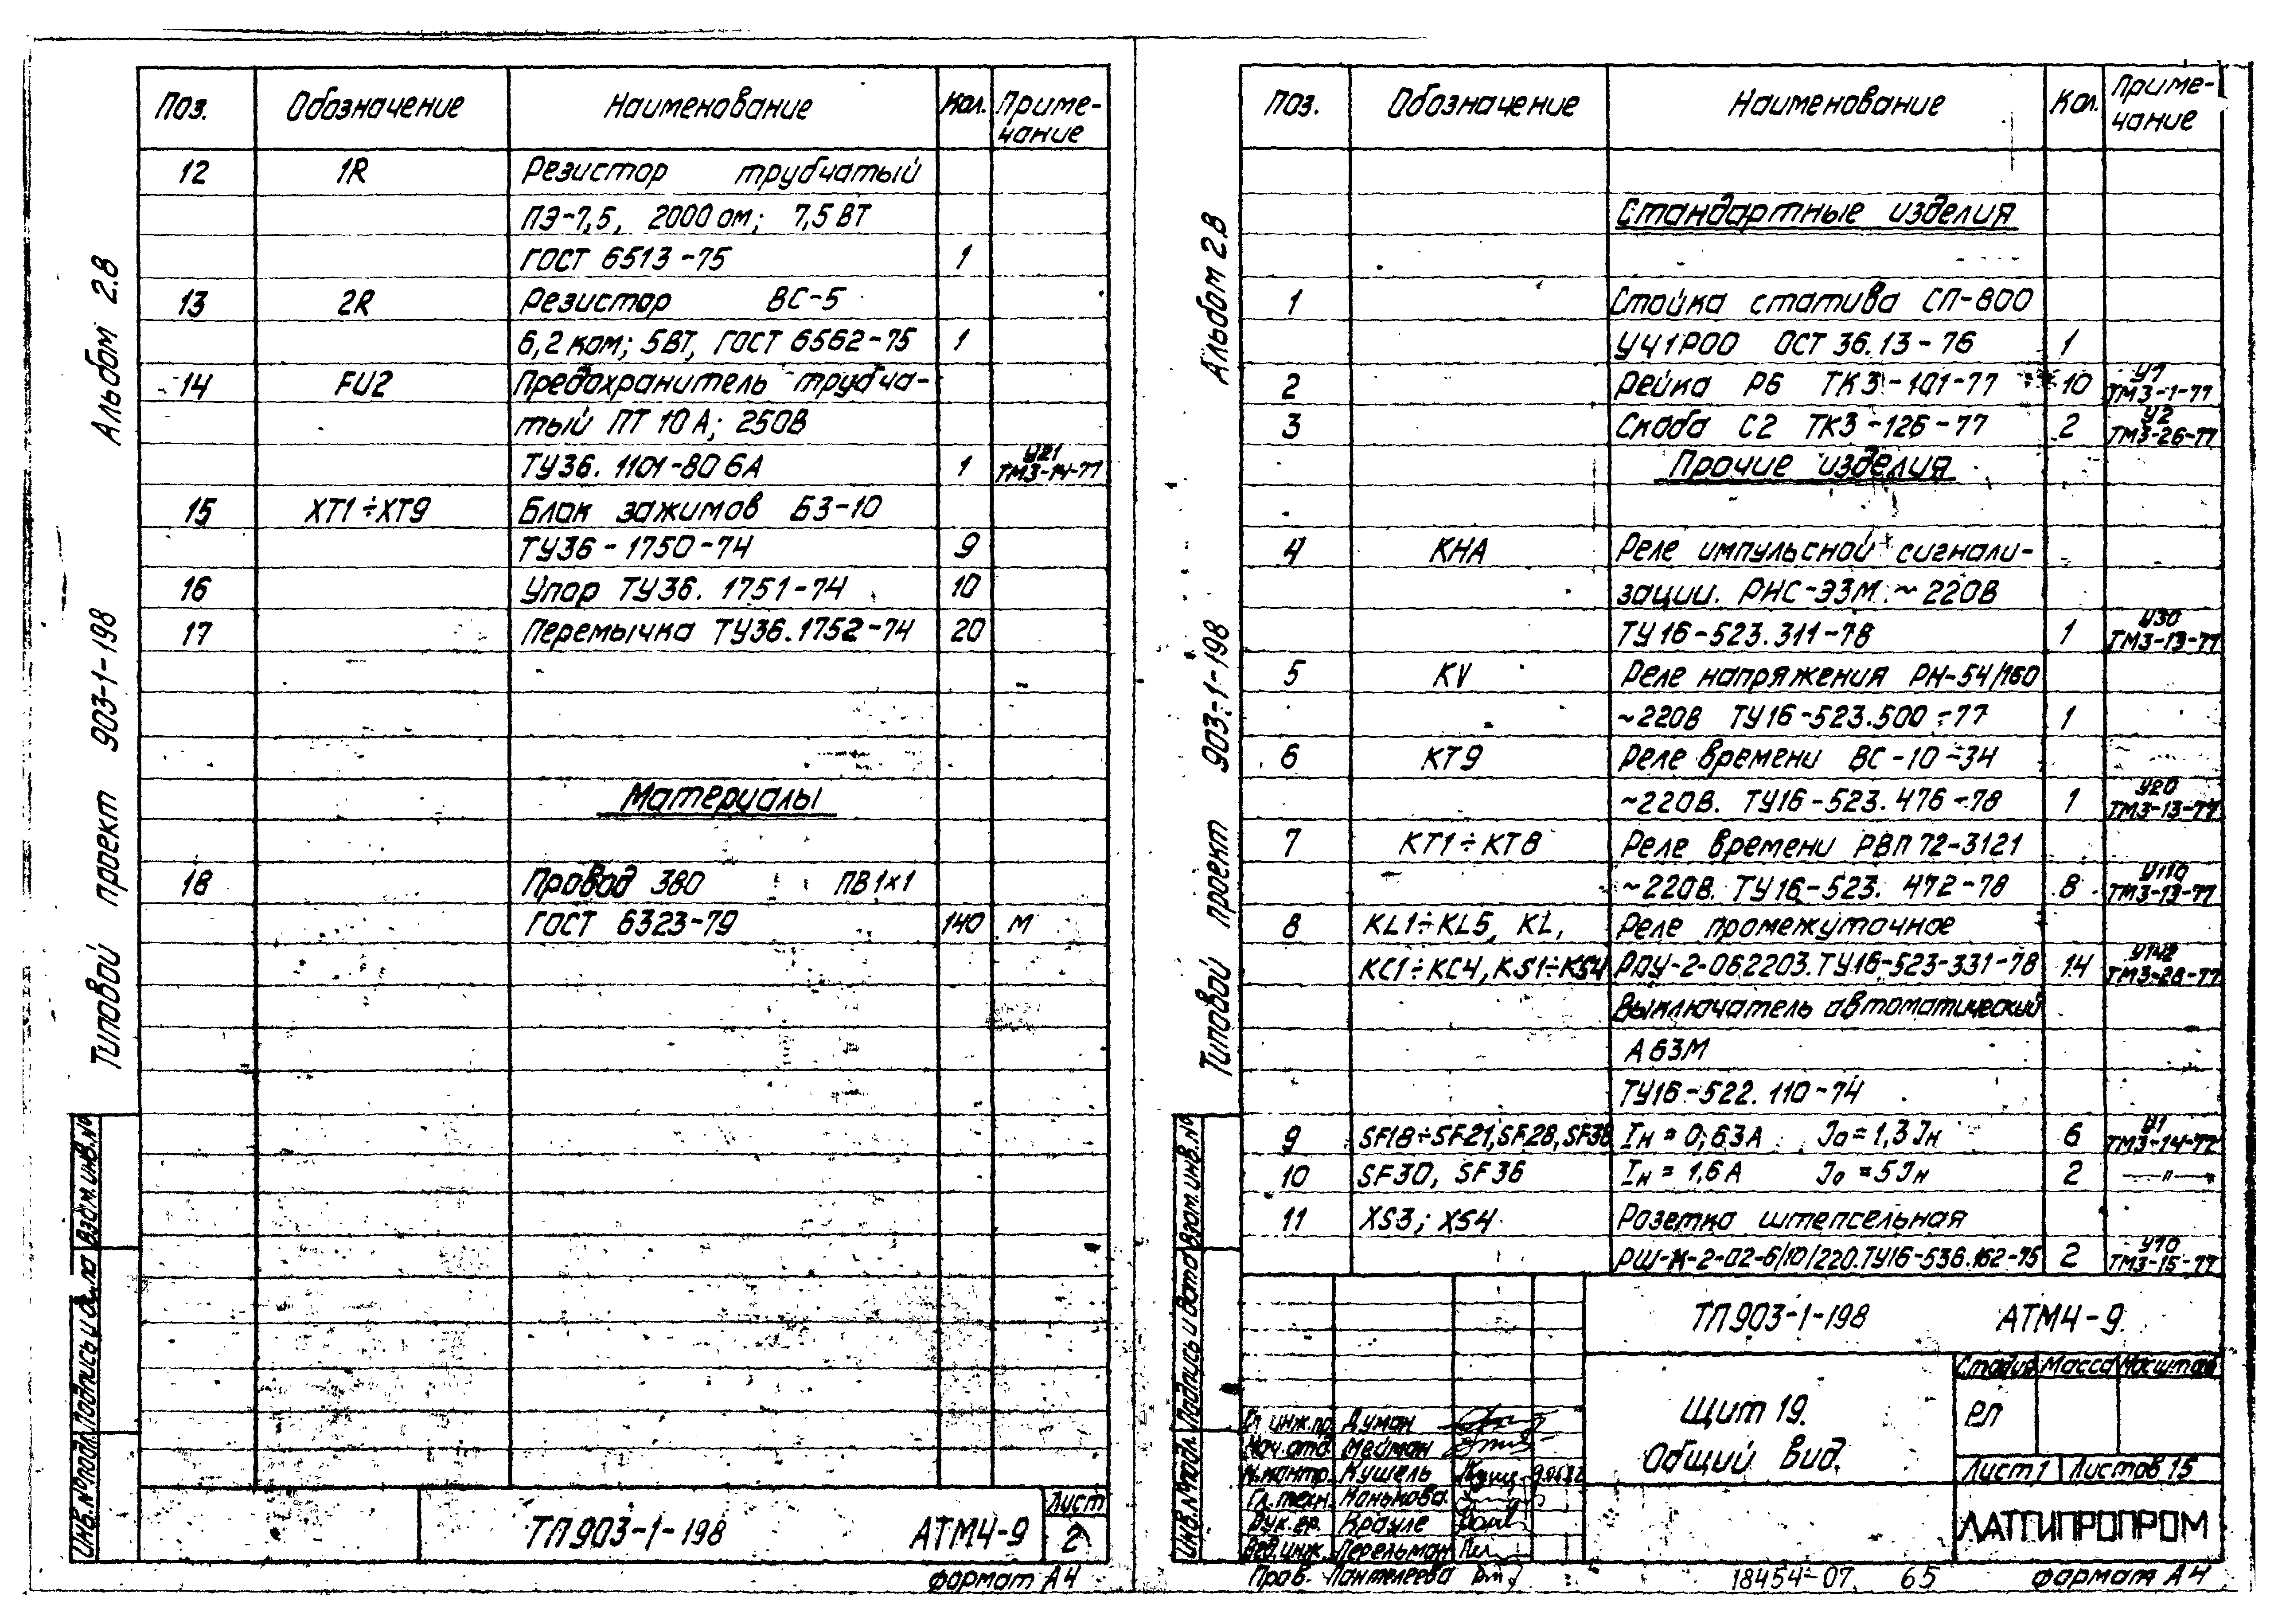 Альбом 2.8
Типовой проект 903-1-198
Поз. Обозначение Наименование Кол. Приме-
чание
12 1R Резистор трубчатый
ПЭ-7,5, 2000 ом; 7,5 ВТ
ГОСТ 6513-75 1
13 2R Резистор ВС-5
6,2 ком; 5ВТ, ГОСТ 6562-75 1
14 FU2 Предохранитель трубча-
тый ПТ 10А; 250В
ТУ36. 1101-80 6А 1 У21
ТМ3-14-77
15 ХТ1÷ХТ9 Блок зажимов БЗ-10
ТУ36-1750-74 9
16 Упор ТУ36. 1751-74 10
17 Перемычка ТУ36.1752-74 20
Материалы
18 Провод 380 ПВ1х1
ГОСТ 6323-79 140 м
Инв.№подл. Подпись и дата Взам.инв.№
ТП903-1-198 АТМ4-9 Лист
2
формат А4
Альбом 2.8
Типовой проект 903-1-198
Поз. Обозначение Наименование Кол. Приме-
чание
Стандартные изделия
1 Стойка статива СП-800
УЧ1Р00 ОСТ 36.13-76 1
2 Рейка Р6 ТК3-101-77 10 У7
ТМ3-1-77
3 Скоба С2 ТК3-126-77 2 У2
ТМ3-26-77
Прочие изделия
4 КНА Реле импульсной сигнали-
зации. РИС-ЭЗМ. ~220В
ТУ16-523.311-78 1 У30
ТМ3-13-77
5 KV Реле напряжения РН-54/160
~220В ТУ16-523.500-77 1
6 КТ9 Реле времени ВС-10-34
~220В. ТУ16-523.476-78 1 У20
ТМ3-13-77
7 КТ1÷КТ8 Реле времени РВП72-3121
~220В. ТУ16-523. 472-78 8 У110
ТМ3-13-77
8 KL1÷KL5, KL, Реле промежуточное
КС1÷КС4, KS1÷KS4 РПУ-2-062203.ТУ16-523-331-78 14 У142
ТМ3-28-77
Выключатель автоматический
А63М
ТУ16-522.110-74
9 SF18÷SF21, SF28, SF38 Iн = 0,63А Jо = 1,3 Jн 6 У1
ТМ3-14-77
10 SF30, SF36 Iн = 1,6А Jо = 5Jн 2 —"—
11 XS3; XS4 Розетка штепсельная
РШ-Ж-2-02-6/10/220.ТУ16-536.162-75 2 У10
ТМ3-15-77
Инв.№подл. Подпись и дата Взам.инв.№
ТП903-1-198 АТМ4-9
Щит 19.
Общий вид.
Стадия Масса Масштаб
РП
Лист 1 Листов 15
ЛАТГИПРОПРОМ
Гл.инж.пр. Думан
Нач.отд. Мейман
Н.контр. Кушель
Гл.техн. Конькова
Рук.гр. Крауле
Вед.инж. Перельман
Пров. Пантелеева
18454-07 65 формат А4